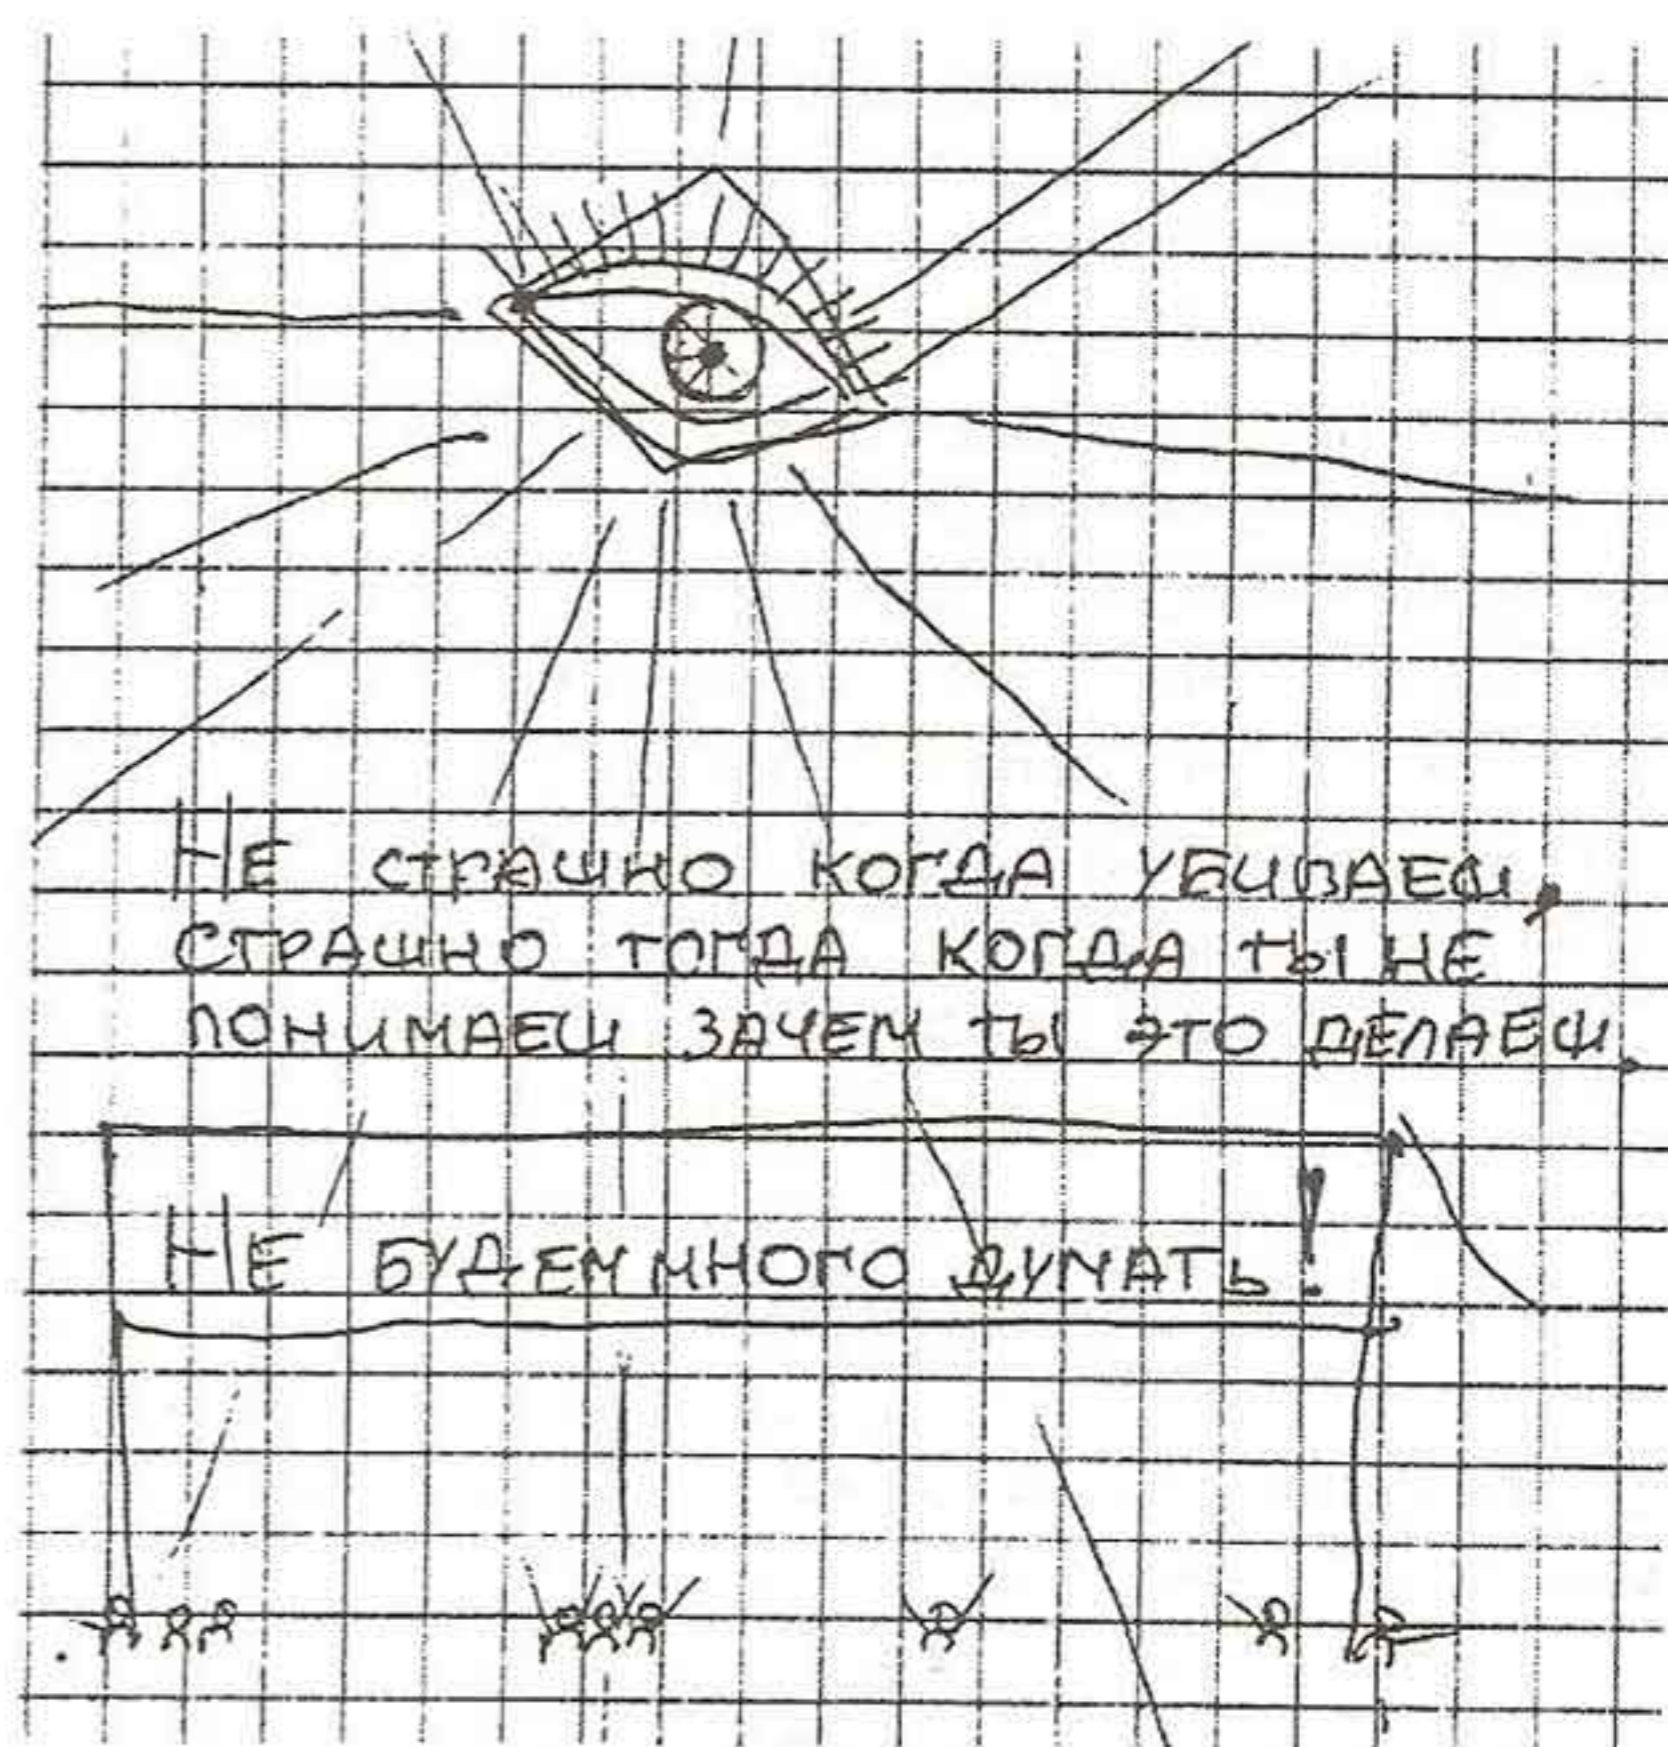 НЕ СТРАШНО КОГДА УБИВАЕШ,
СТРАШНО ТОГДА КОГДА ТЫ НЕ
ПОНИМАЕШ ЗАЧЕМ ТЫ ЭТО ДЕЛАЕШ.
НЕ БУДЕМ МНОГО ДУМАТЬ!